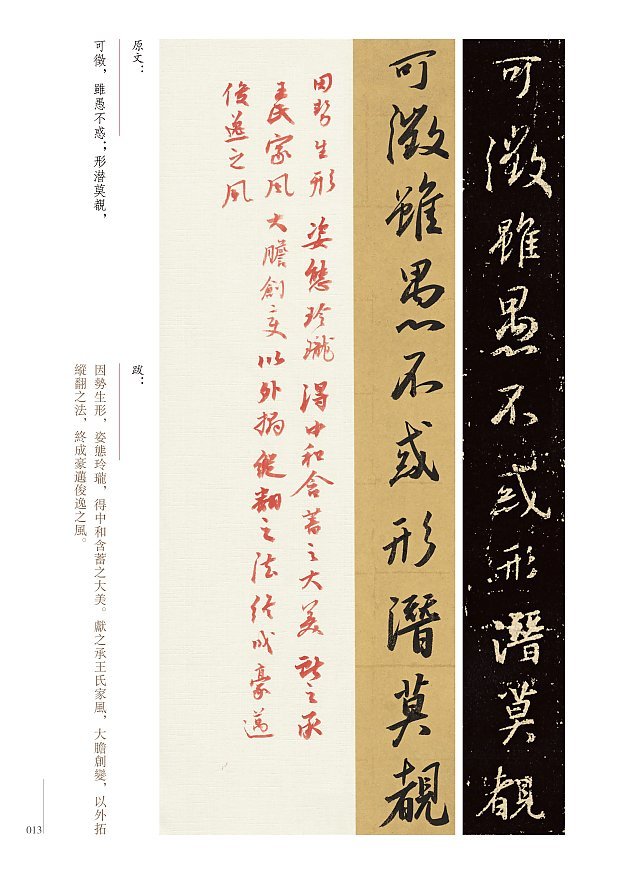 可徵雖愚不惑形潛莫覩
可徵雖愚不或形潛莫覩
因勢生形 姿態玲瓏 得中和含蓄之大美 獻之承
王氏家風大膽創變以外拓縱翻之法終成豪邁
俊逸之風
原文：
可徵，雖愚不惑；形潛莫覩，
跋：
因勢生形，姿態玲瓏，得中和含蓄之大美。獻之承王氏家風，大膽創變，以外拓
縱翻之法，終成豪邁俊逸之風。
013